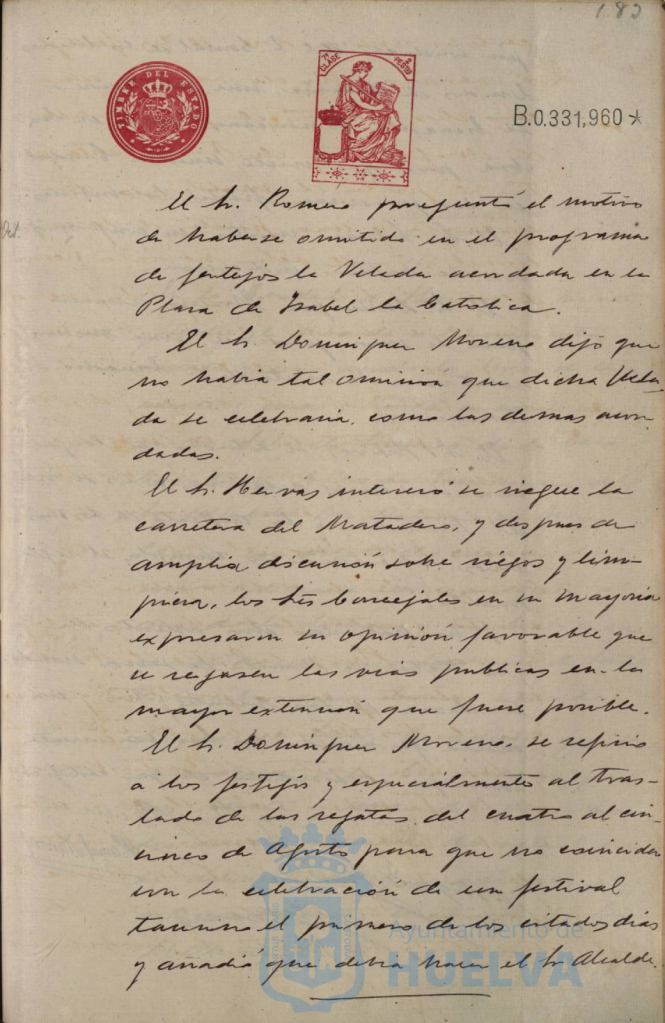 182
TIMBRE DEL ESTADO
7ª CLASE
2 PESETAS
B.0.331,960*
El Sr. Romero preguntó el motivo
de haberse omitido en el programa
de festejos la Velada acordada en la
Plaza de Isabel la Catolica.
El Sr. Dominguez Moreno dijo que
no habia tal omisión que dicha Vela-
da se celebraria como las demas acor-
dadas.
El Sr. Hervás interesó se riegue la
carretera del Matadero, y despues de
amplia discusión sobre riegos y lim-
pieza, los Sres Concejales en su mayoria
expresaron su opinión favorable que
se regasen las vias publicas en la
mayor extensión que fuere posible.
El Sr. Dominguez Moreno, se refirió
a los festejos y especialmente al tras-
lado de las regatas del cuatro al cin-
cinco de Agosto para que no coincidan
con la celebración de un festival
taurino el primero de los citados dias
y añadió que debia hacer el Sr Alcalde.
Ayuntamiento de
HUELVA